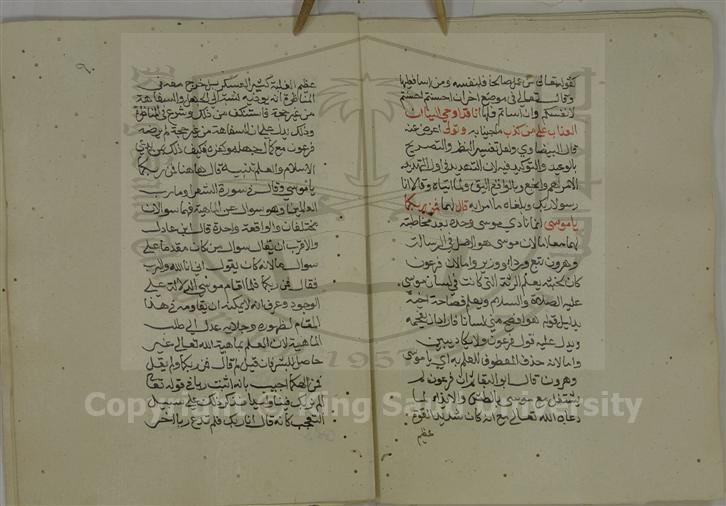 كقوله تعالى من عمل صالحا فلنفسه ومن اسا فعليها
وقال تعالى في موضع اخر ان احسنتم احسنتم
لانفسكم وان اساتم فلها انا قد اوحي الينا ان
العذاب على من كذب ما جينا به وتولى اعرض عنه
قال البيضاوي ولعل تفسير النظم والتصريح
بالوعيد والتوكيد فيه لان التهديد في اول
الامر اهم وانجع وبالواقع اليق ولما اتياه وقالا انا
رسولا ربك وبلغاه ما امرا به قال لهما فمن ربكما
يا موسى انما نادى موسى وحده بعد مخاطبته
لهما معا اما لان موسى هو الاصل في الرسالة
وهرون تبع ورداء ووزير واما لان فرعون
كان لخبثه يعلم الرتة التي كانت في لسان موسى
عليه الصلاة والسلام ويعلم فصاحة اخيه
بدليل قوله هو افصح مني لسانا فاراد ان يفحمه
ويدل عليه قول فرعون ولا يكاد يبين
واما لانه حذف المعطوف للعلم به اي يا موسى
وهرون قاله ابو البقا فان فرعون لم
يشتغل مع موسى بالبطش والايذاء لما
دعاه الى الله تعالى مع انه كان شديد القوة
عظيم
عظيم الغلبة كثير العسكر بل خرج معه في
المناظرة لانه لو اذاه لنسب الى الجهل والسفاهة
من غير حجة فاستنكف من ذلك وشرع في المناظرة
وذلك يدل على ان السفاهة من غير حجة لم يرضه
فرعون مع كمال جهله وكفره فكيف ذلك بمن يدعي
الاسلام والعلم تنبيه قال هاهنا فمن ربكما
يا موسى وقال في سورة الشعرا وما رب
العالمين وهو سوال عن الماهية فهما سوالان
مختلفان والواقعة واحدة قال ابن عادل
والاقرب ان يقال سوال من كان مقدما على
سوال ما لانه كان يقول اني انا الله والرب
فقال فمن ربكما فلما اقام موسى الدلالة على
الوجود وعرف انه لا يمكنه ان يقاومه في هذا
المقام لظهوره وجلائه عدل الى طلب
الماهية لان العلم بماهية الله تعالى غير
حاصل للبشر فان قيل لم قال فمن ربكما ولم يقل
فمن الهكما اجيب بانه اثبت ربا في قوله تعالى
الم نربك فينا وليدا فذكر ذلك على سبيل
التعجب كانه قال انا ربك فلم تدعي ربا اخر
Copyright © King Saud University
1957